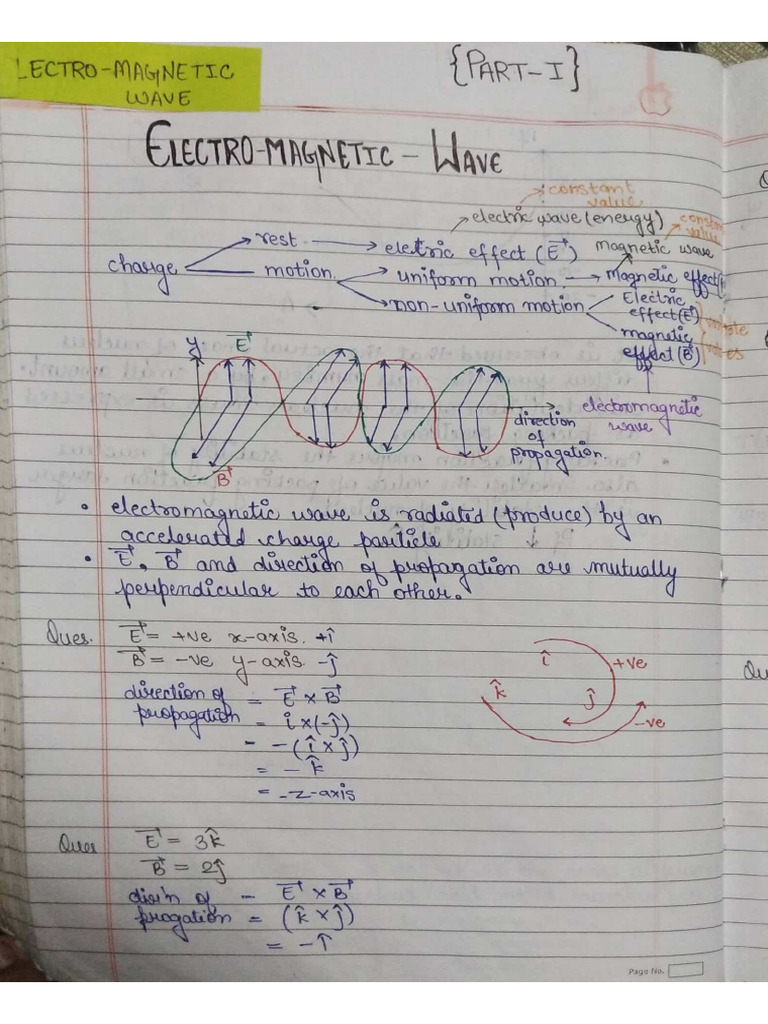 LECTRO-MAGNETIC
WAVE
{PART-I}
ELECTRO-MAGNETIC-WAVE
constant
value
electric wave (energy)
constant
value
charge
rest
electric effect (E⃗)
magnetic wave
motion
uniform motion
Magnetic effect(
non-uniform motion
Electric
effect(E⃗)
magnetic
effect (B⃗)
electromagnetic
wave
y
E⃗
B⃗
direction
of
propagation.
• electromagnetic wave is radiated (produce) by an
accelerated charge particle
• E⃗, B⃗ and direction of propagation are mutually
perpendicular to each other.
Ques. E⃗ = +ve x-axis. +î
B⃗ = -ve y-axis -ĵ
direction of
propagation = E⃗ × B⃗
= i × (-ĵ)
= -(î × ĵ)
= - k̂
= -z-axis
î
k̂
ĵ
+ve
-ve
Ques E⃗ = 3k̂
B⃗ = 2ĵ
dirn'n of - E⃗ × B⃗
progation = (k̂ × ĵ)
= -î
Page No.